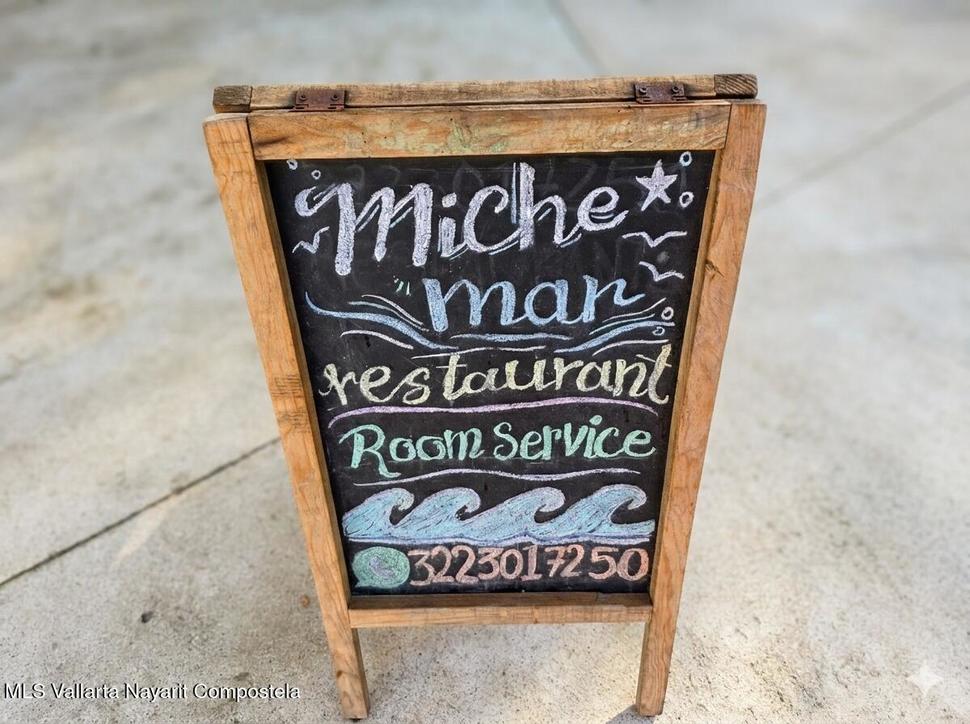 Miche
mar
restaurant
Room Service
3223017250
MLS Vallarta Nayarit Compostela